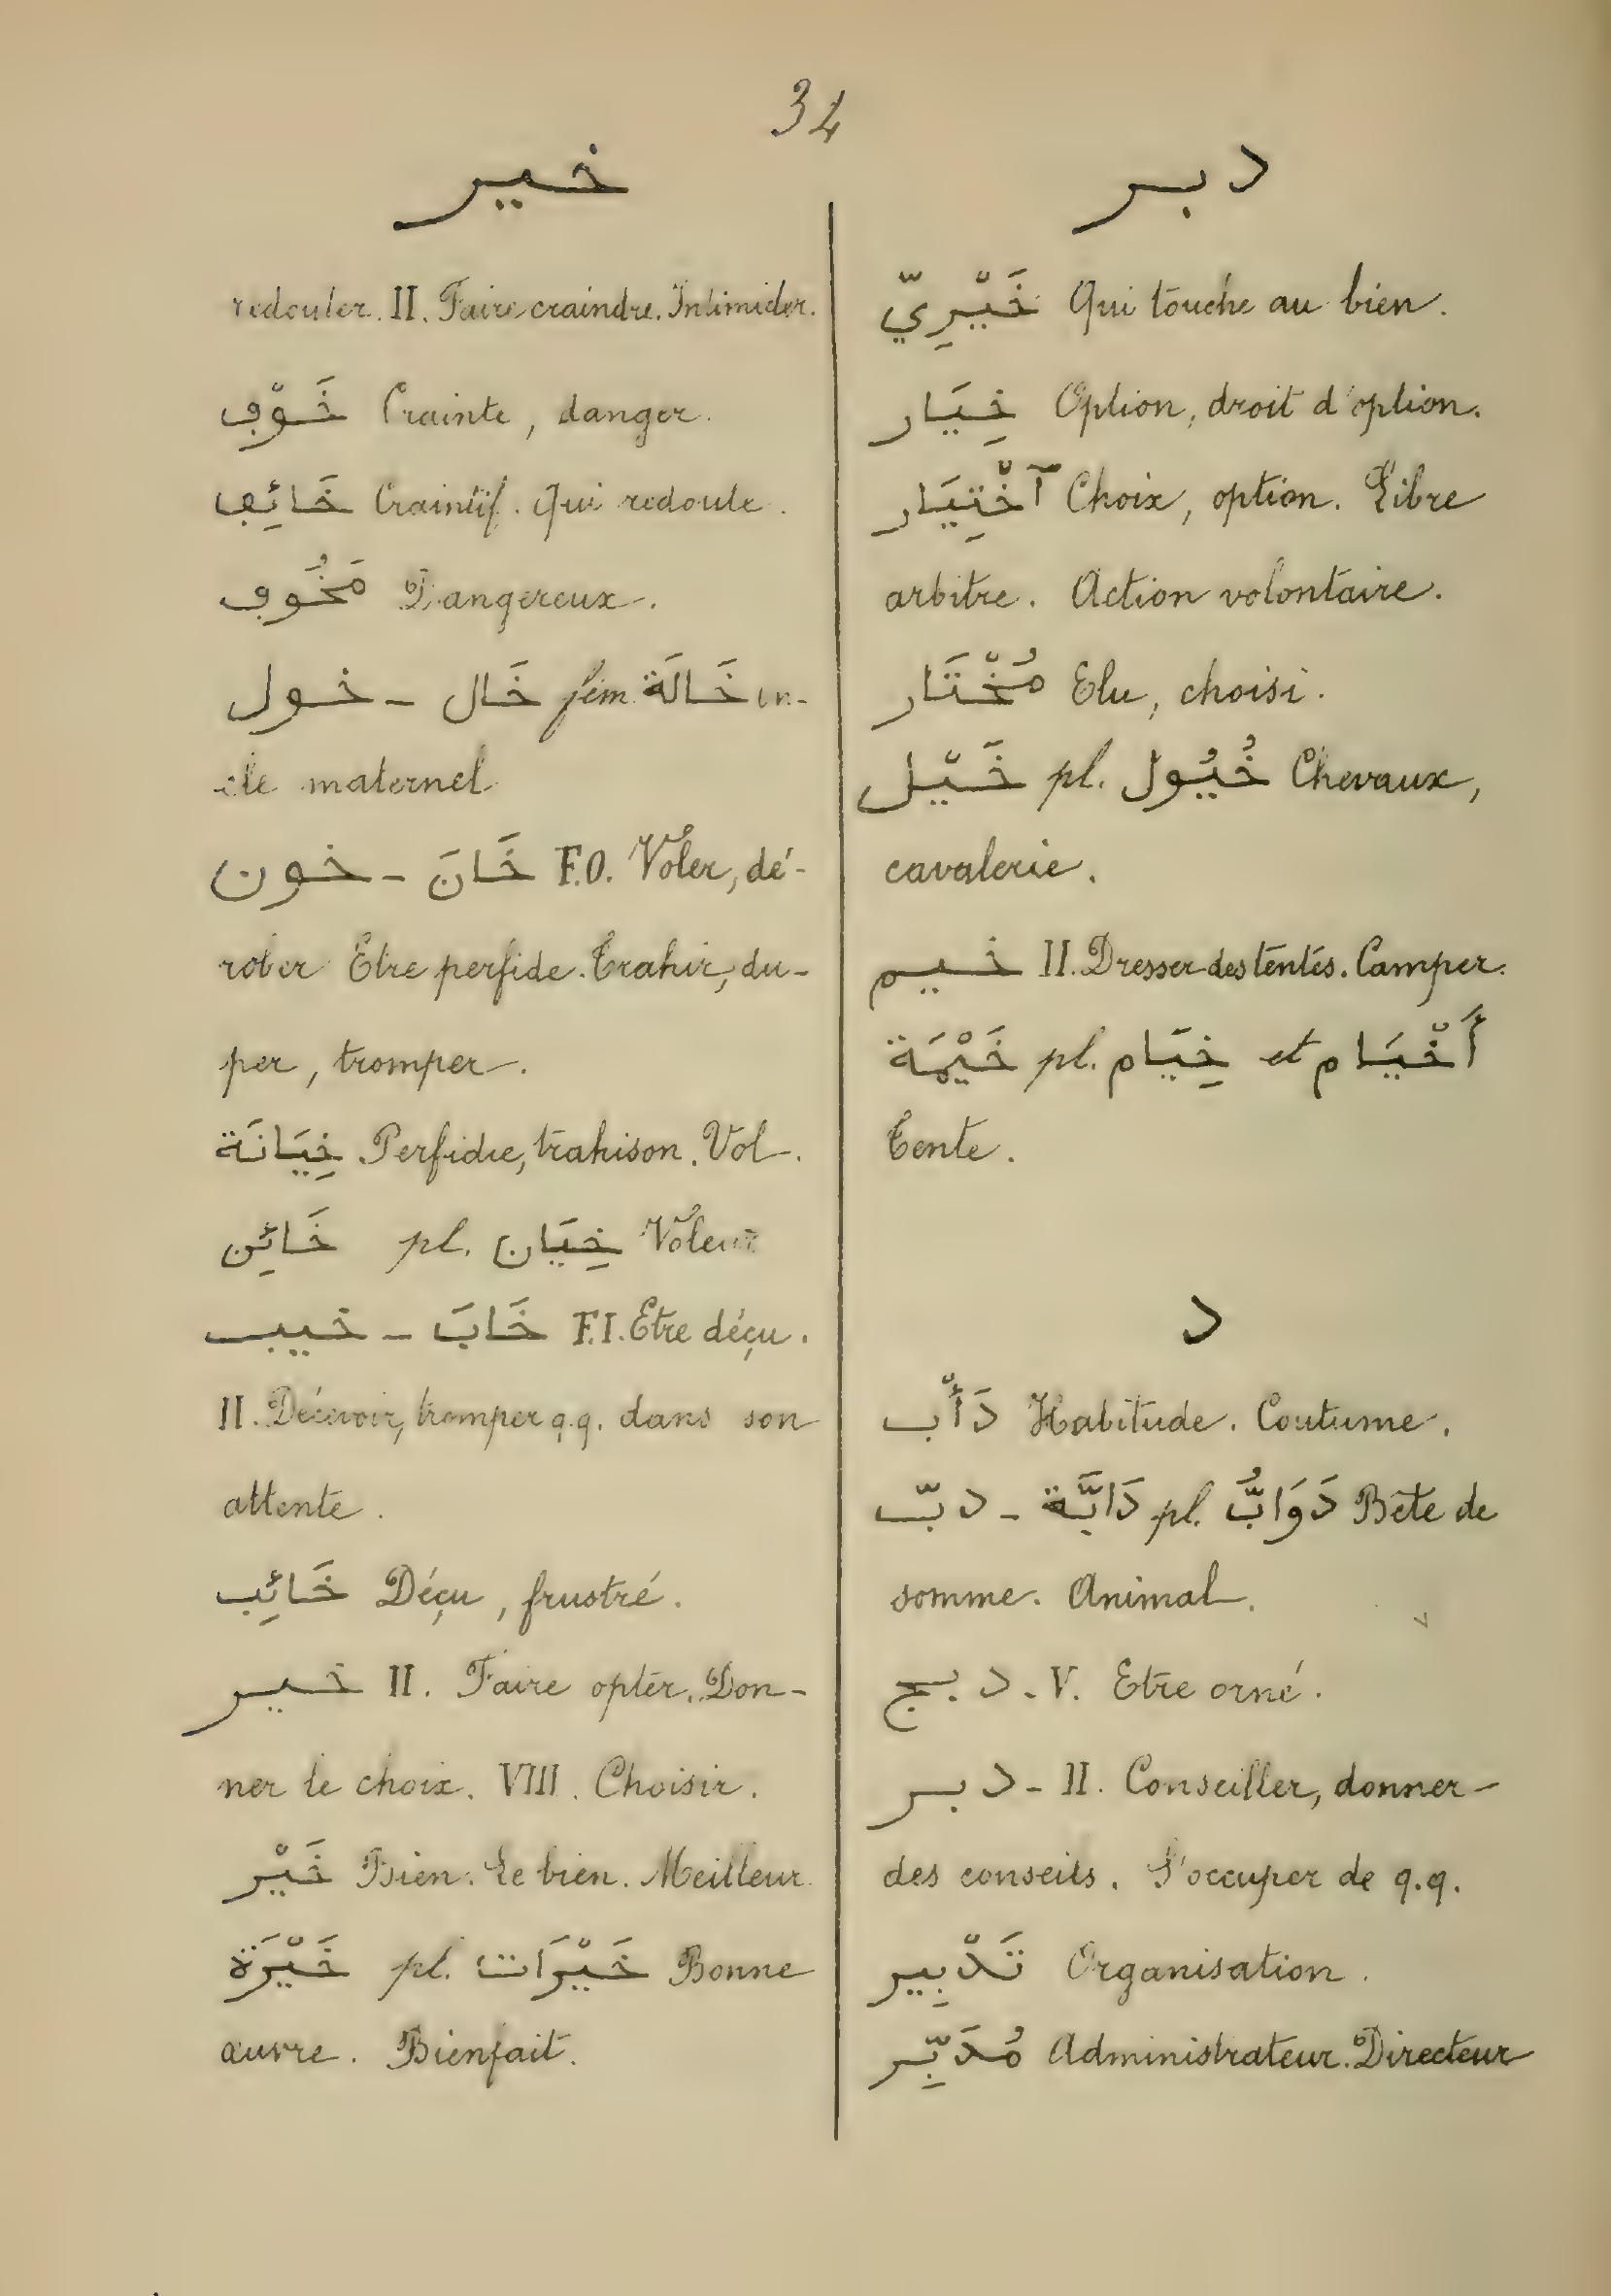 34
خير
redouter. II. Faire craindre. Intimider.
خَوْف Crainte, danger.
خَائِف Craintif. Qui redoute.
مَخُوف Dangereux.
خول - خَال fém. خَالَة on-
cle maternel
خون - خَانَ F.O. Voler, dé-
rober Etre perfide. Trahir, du-
per, tromper.
خِيَانَة Perfidie, trahison. Vol.
خَائِن pl. خِيَان Voleur
خيب - خَابَ F.I. Etre déçu.
II. Décevoir, tromper q.q. dans son
attente.
خَائِب Déçu, frustré.
خير II. Faire opter. Don-
ner le choix. VIII. Choisir.
خَيْر Bien. Le bien. Meilleur
خَيْرَة pl. خَيْرَات Bonne
œuvre. Bienfait.
دبر
خَيْرِيّ Qui touche au bien.
خِيَار Option, droit d'option.
آخْتِيَار Choix, option. Libre
arbitre. Action volontaire.
مُخْتَار Elu, choisi.
خَيْل pl. خُيُول Chevaux,
cavalerie.
خيم II. Dresser des tentes. Camper.
خَيْمَة pl. خِيَام et أَخْيَام
Tente.
د
دَأْب Habitude. Coutume.
دبّ - دَابَّة pl. دَوَابُّ Bête de
somme. Animal.
دبج - V. Etre orné.
دبر - II. Conseiller, donner
des conseils. S'occuper de q.q.
تَدْبِير Organisation.
مُدَبِّر Administrateur. Directeur